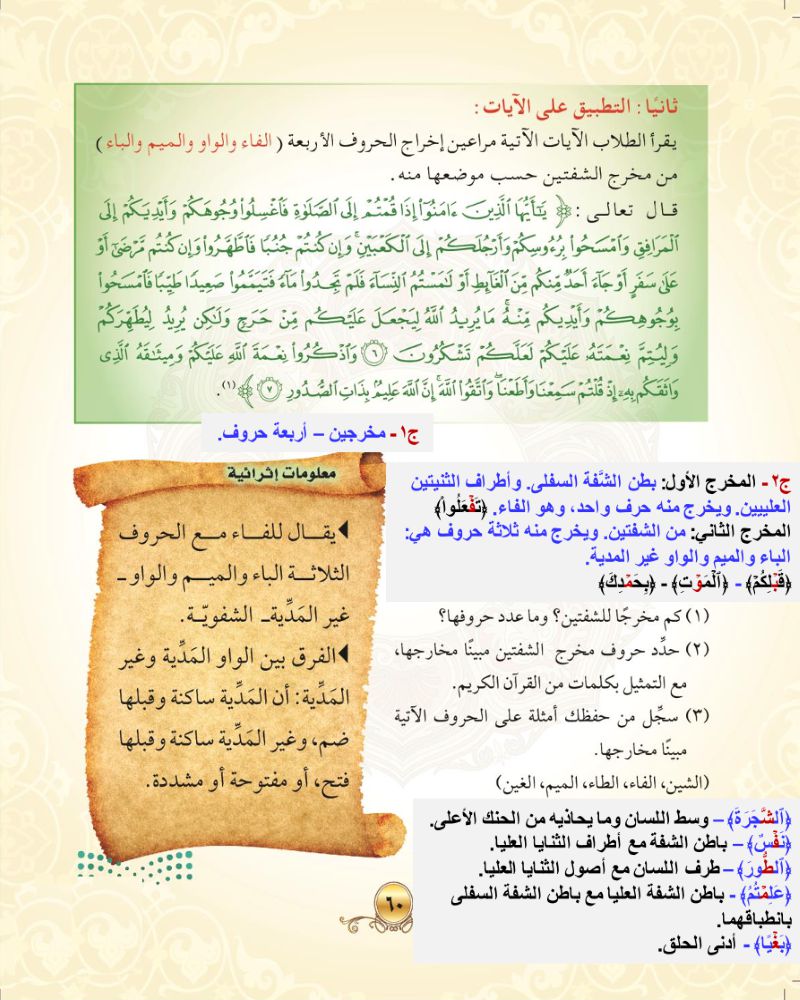 ثانيًا: التطبيق على الآيات:
يقرأ الطلاب الآيات الآتية مراعين إخراج الحروف الأربعة (الفاء والواو والميم والباء)
من مخرج الشفتين حسب موضعها منه.
قال تعالى: ﴿يَٰٓأَيُّهَا ٱلَّذِينَ ءَامَنُوٓا۟ إِذَا قُمْتُمْ إِلَى ٱلصَّلَوٰةِ فَٱغْسِلُوا۟ وُجُوهَكُمْ وَأَيْدِيَكُمْ إِلَى
ٱلْمَرَافِقِ وَٱمْسَحُوا۟ بِرُءُوسِكُمْ وَأَرْجُلَكُمْ إِلَى ٱلْكَعْبَيْنِ ۚ وَإِن كُنتُمْ جُنُبًا فَٱطَّهَّرُوا۟ ۚ وَإِن كُنتُم مَّرْضَىٰٓ أَوْ
عَلَىٰ سَفَرٍ أَوْ جَآءَ أَحَدٌ مِّنكُم مِّنَ ٱلْغَآئِطِ أَوْ لَٰمَسْتُمُ ٱلنِّسَآءَ فَلَمْ تَجِدُوا۟ مَآءً فَتَيَمَّمُوا۟ صَعِيدًا طَيِّبًا فَٱمْسَحُوا۟
بِوُجُوهِكُمْ وَأَيْدِيكُم مِّنْهُ ۚ مَا يُرِيدُ ٱللَّهُ لِيَجْعَلَ عَلَيْكُم مِّنْ حَرَجٍ وَلَٰكِن يُرِيدُ لِيُطَهِّرَكُمْ
وَلِيُتِمَّ نِعْمَتَهُۥ عَلَيْكُمْ لَعَلَّكُمْ تَشْكُرُونَ ٦ وَٱذْكُرُوا۟ نِعْمَةَ ٱللَّهِ عَلَيْكُمْ وَمِيثَٰقَهُ ٱلَّذِى
وَاثَقَكُم بِهِۦٓ إِذْ قُلْتُمْ سَمِعْنَا وَأَطَعْنَا ۖ وَٱتَّقُوا۟ ٱللَّهَ ۚ إِنَّ ٱللَّهَ عَلِيمٌۢ بِذَاتِ ٱلصُّدُورِ ٧﴾ (١).
ج١- مخرجين – أربعة حروف.
ج٢- المخرج الأول: بطن الشَّفة السفلى. وأطراف الثنيتين
العلييين. ويخرج منه حرف واحد، وهو الفاء. ﴿تَفْعَلُواْ﴾
المخرج الثاني: من الشفتين. ويخرج منه ثلاثة حروف هي:
الباء والميم والواو غير المدية.
﴿قَبْلِكُمْ﴾ - ﴿ٱلْمَوْتِ﴾ - ﴿بِحَمْدِكَ﴾
(١) كم مخرجًا للشفتين؟ وما عدد حروفها؟
(٢) حدِّد حروف مخرج الشفتين مبينًا مخارجها،
مع التمثيل بكلمات من القرآن الكريم.
(٣) سجِّل من حفظك أمثلة على الحروف الآتية
مبينًا مخارجها.
(الشين، الفاء، الطاء، الميم، الغين)
﴿ٱلشَّجَرَةَ﴾ – وسط اللسان وما يحاذيه من الحنك الأعلى.
﴿نَفْسٌ﴾ – باطن الشفة مع أطراف الثنايا العليا.
﴿ٱلطُّورَ﴾ – طرف اللسان مع أصول الثنايا العليا.
﴿عَلِمْتُمُ﴾ - باطن الشفة العليا مع باطن الشفة السفلى
بانطباقهما.
﴿بَغْيًا﴾ - أدنى الحلق.
معلومات إثرائية
يقال للفاء مع الحروف
الثلاثة الباء والميم والواو-
غير المَدِّية- الشفويّة.
الفرق بين الواو المَدِّية وغير
المَدِّية: أن المَدِّية ساكنة وقبلها
ضم، وغير المَدِّية ساكنة وقبلها
فتح، أو مفتوحة أو مشددة.
٦٠